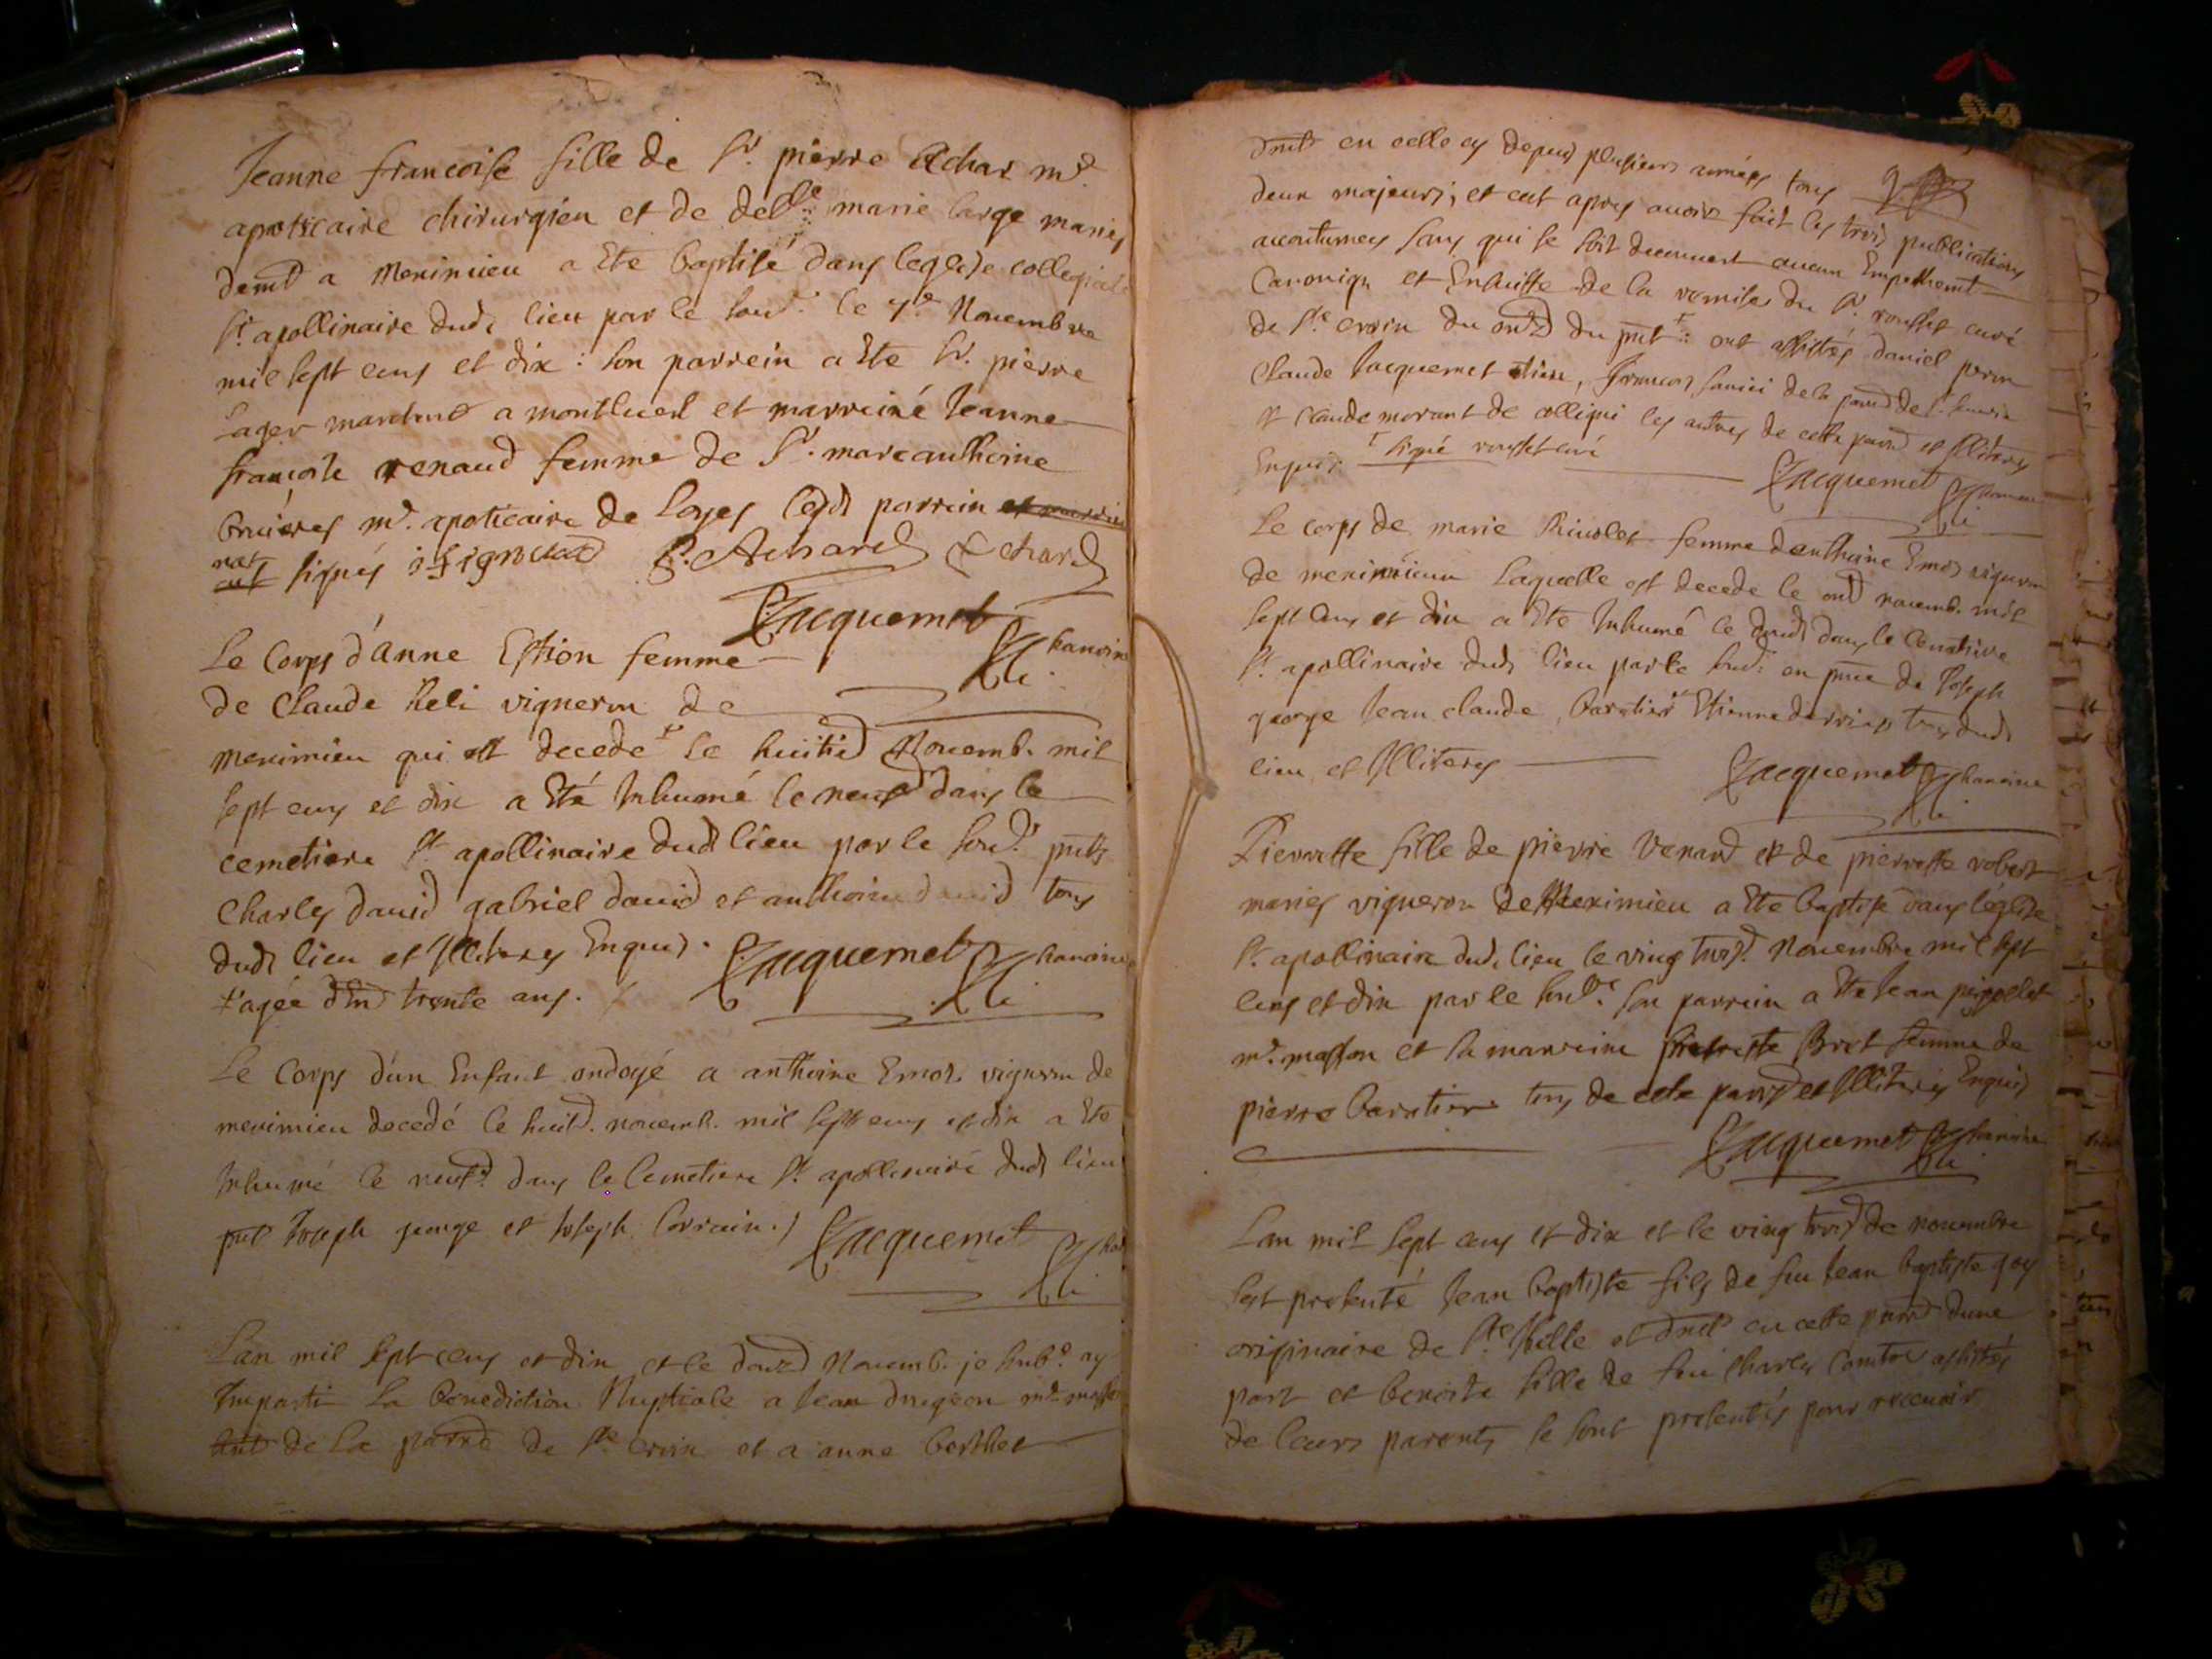 Jeanne francoise fille de Sr. pierre Achar md.
apoticaire chirurgien et de delle marie large mariés
demt a Meximieu a Ete baptisé dans leglise collegiale
St. apollinaire dud. lieu par le sous. le 7e. Novembre
mil sept cens et dix : son parrein a Ete Sr. pierre
Lager marchand a montluel et marreine Jeanne
francoise renaud femme de Sr. marcanthoine
bruieres md. apoticaire de Loyes lesds parrein
ont signés P. Achard Achard
Jacquemet chanoine
Le Corps d'anne Estion femme
de Claude heli vigneron de
meximieu qui est decede + le huitie Novemb. mil
sept cens et dix a Eté Inhumé le neuf dans le
cemetiere St apollinaire dud lieu par le sousd. pnts
Charles david gabriel david et anthoine david tous
dud lieu et Illiteres Enquis. Jacquemet chanoine
+ agée d'En trente ans.
Le Corps d'un Enfant ondoyé a anthoine Emos vigneron de
meximieu decedé le huit. novemb. mil sept cens et dix a Ete
Inhumé le neuf. dans le Cemetiere St. apollinaire dud lieu
pnt Joseph george et Joseph Lorrain. Jacquemet cha
Lan mil sept cens et dix et le douze Novemb. je subs. ay
Imparti La benediction Nuptiale a Jean drugeon md. masson
de la parr de Ste croix et a anne berthet
dmt en celle cy depuis plusieurs années tous
deux majeurs; et cet apres avoir fait les trois publications
accoutumees sans qui se soit decouvert aucun Empechemt
Canoniq et Ensuitte de la remise du Sr. rousset curé
de Ste. croix du onz du pnt + : ont assistés daniel perrin
Claude Jacquemet, francois de la parr de
et Claude morant de les autres de cette parr et Illiteres
Enquis. + signé rousset curé Jacquemet chanoine
Le corps de marie Rivolet femme danthoine Emos vigneron
de meximieu Laquelle est decede le onz novemb. mil
sept Cens et dix a Ete Inhumé le dans le Cemetiere
St. apollinaire dud lieu par le sous. en pnce de Joseph
george Jean claude baratier Etienne tous dud
lieu et Illiteres Jacquemet chanoine
Pierrette fille de pierre Venard et de pierrette robert
mariés vigneron de Meximieu a Ete baptisé dans léglise
St. apollinaire dud. lieu le ving trois Novembre mil sept
cens et dix par le sous. son parrein a Ete Jean
md. masson et la marreine Brot femme de
pierre baratier tous de cete parr et Illiteres Enquis
Jacquemet chanoine
Lan mil sept cens et dix et le ving trois de novembre
sest presenté Jean baptiste fils de feu Jean baptiste goy
originaire de Ste et dmt en cette parr dune
part et benoite fille de feu Charles assistés
de leurs parents se sont presentés pour recevoir